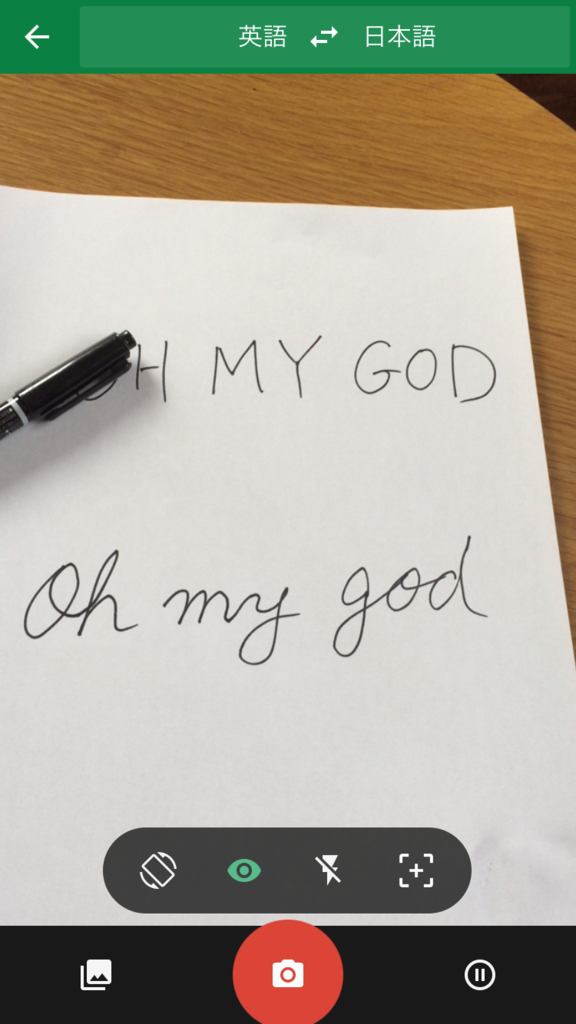 英語 日本語
OH MY GOD
Oh my god